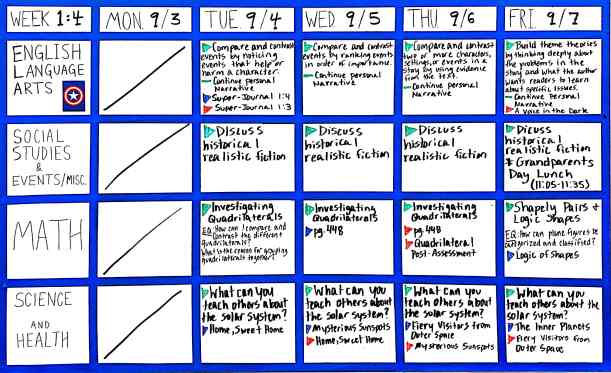 WEEK 1:4
MON 9/3
TUE 9/4
WED 9/5
THU 9/6
FRI 9/7
ENGLISH
LANGUAGE
ARTS
Compare and contrast
events by noticing
events that help or
harm a character.
Continue personal
Narrative
Super-Journal 1:4
Super-Journal 1:3
Compare and contrast
events by ranking events
in order of importance.
Continue personal
Narrative
Compare and contrast
two or more characters,
settings, or events in a
story by using evidence
from the text.
Continue personal
Narrative
Build theme theories
by thinking deeply about
the problems in the
story and what the author
wants readers to learn
about specific issues.
Continue Personal
Narrative
A Voice in the Dark
SOCIAL
STUDIES
&
EVENTS/MISC.
Discuss
historical
realistic fiction
Discuss
historical
realistic fiction
Discuss
historical
realistic fiction
Dicuss
historical
realistic fiction
* Grandparents
Day Lunch
(11:05-11:35)
MATH
Investigating
Quadrilaterals
EQ: How can I compare and
contrast the different
quadrilaterals?
What is the reason for grouping
quadrilaterals together?
Investigating
Quadrilaterals
pg. 448
Investigating
Quadrilaterals
pg. 448
Quadrilateral
Post-Assessment
Shapely Pairs +
Logic Shapes
EQ: How can plane figures be
categorized and classified?
Logic of Shapes
SCIENCE
AND
HEALTH
What can you
teach others about
the solar system?
Home, Sweet Home
What can you
teach others about
the solar system?
Mysterious Sunspots
Home, Sweet Home
What can you
teach others about
the solar system?
Fiery Visitors from
Outer Space
Mysterious Sunspots
What can you
teach others about the
solar system?
The Inner Planets
Fiery Visitors from
Outer Space